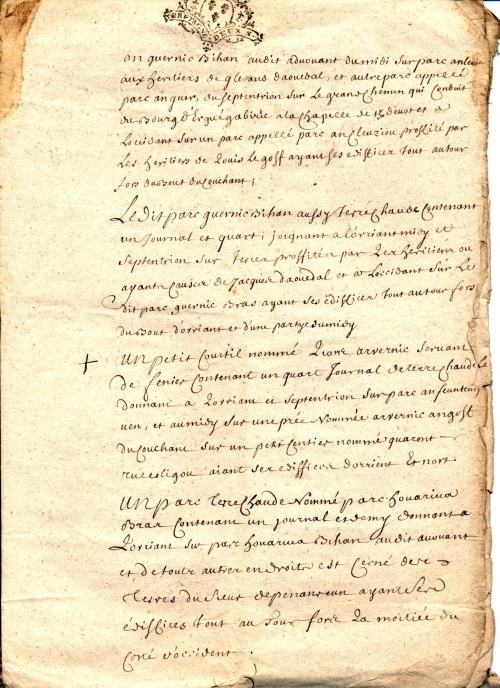 BRETAGNE DEUX S.
an guernic Bihan audit advouant du midi sur parc an
aux heritiers de daouedal, et autre parc appellé
parc anguer, du septentrion sur Le grand chemin qui conduit
du Bourg d'Ergué gaberic a la chapelle de et a
Loccidant sur un parc appellé parc an Cleuziou proffité par
Les heritiers de Louis Le goff ayant ses edifficer tout autour
fors du Bout du Couchant;
Le dit parc guernic Bihan aussy Terre Chaude Contenant
un Journal et quart, joignant a l'orriant midy et
septentrion sur Terres proffitées par Les heritierer ou
ayantz causer de Jacques daouedal et a Loccidant sur Le
dit parc guernic Bras ayant ses édifficer tout autour fors
du Bout d'orriant et d'une partye du midy
+ un petit Courtil nommé arvernic servant
de fenier Contenant un quart Journal de terre chaude
donnant a Lorriant et septentrion sur parc an feunteun
uen, et au midy sur une prée Nommée arvernic an goff
du Couchant sur un petit Sentier nommé
aiant ses edifficer d'orrient et nort.
un parc Terre Chaude Nommé parc houarica
Bras Contenant un journal et demy donnant a
Lorriant sur parc houarica Bihan audit avouant
et de toutz autres endroits est Cerné des
Terres du sieur de penanrun ayant ses
édiffices tout au Tour fors La moitiée du
Coté d'occident.